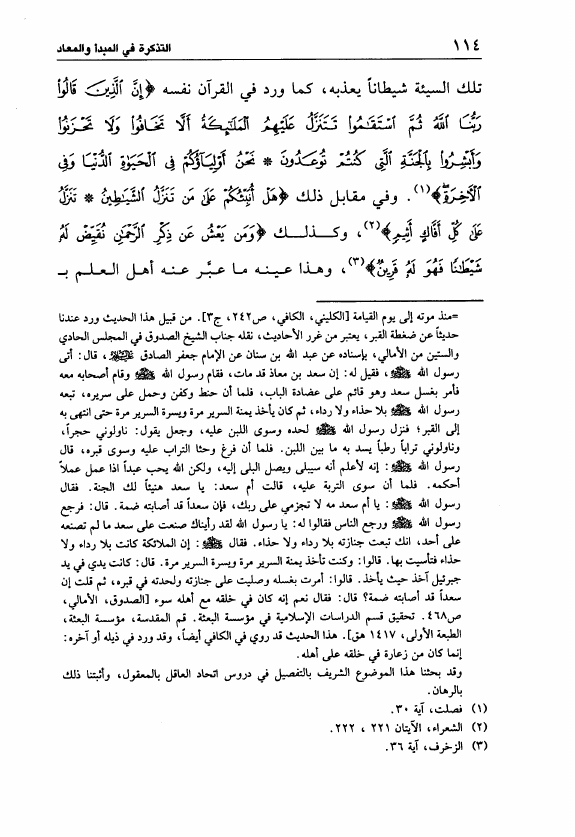 ١١٤ التذكرة في المبدأ والمعاد
تلك السيئة شيطاناً يعذبه، كما ورد في القرآن نفسه ﴿إِنَّ ٱلَّذِينَ قَالُوا۟
رَبُّنَا ٱللَّهُ ثُمَّ ٱسْتَقَٰمُوا۟ تَتَنَزَّلُ عَلَيْهِمُ ٱلْمَلَٰٓئِكَةُ أَلَّا تَخَافُوا۟ وَلَا تَحْزَنُوا۟
وَأَبْشِرُوا۟ بِٱلْجَنَّةِ ٱلَّتِى كُنتُمْ تُوعَدُونَ * نَحْنُ أَوْلِيَآؤُكُمْ فِى ٱلْحَيَوٰةِ ٱلدُّنْيَا وَفِى
ٱلْأَخِرَةِ﴾(١). وفي مقابل ذلك ﴿هَلْ أُنَبِّئُكُمْ عَلَىٰ مَن تَنَزَّلُ ٱلشَّيَٰطِينُ * تَنَزَّلُ
عَلَىٰ كُلِّ أَفَّاكٍ أَثِيمٍ﴾(٢)، وكذلك ﴿وَمَن يَعْشُ عَن ذِكْرِ ٱلرَّحْمَٰنِ نُقَيِّضْ لَهُۥ
شَيْطَٰنًا فَهُوَ لَهُۥ قَرِينٌ﴾(٣)، وهذا عينه ما عبَّر عنه أهل العلم بـ
=منذ موته إلى يوم القيامة [الكليني، الكافي، ص٢٤٢، ج٣]. من قبيل هذا الحديث ورد عندنا
حديثاً عن ضغطة القبر، يعتبر من غرر الأحاديث، نقله جناب الشيخ الصدوق في المجلس الحادي
والستين من الأمالي، بإسناده عن عبد الله بن سنان عن الإمام جعفر الصادق عليه السلام، قال: أتى
رسول الله ﷺ، فقيل له: إن سعد بن معاذ قد مات، فقام رسول الله ﷺ وقام أصحابه معه
فأمر بغسل سعد وهو قائم على عضادة الباب، فلما أن حنط وكفن وحمل على سريره، تبعه
رسول الله ﷺ بلا حذاء ولا رداء، ثم كان يأخذ يمنة السرير مرة ويسرة السرير مرة حتى انتهى به
إلى القبر؛ فنزل رسول الله ﷺ لحده وسوى اللبن عليه، وجعل يقول: ناولوني حجراً،
وناولوني تراباً رطباً يسد به ما بين اللبن. فلما أن فرغ وحثا التراب عليه وسوى قبره، قال
رسول الله ﷺ: إنه لأعلم أنه سيبلى ويصل البلى إليه، ولكن الله يحب عبداً اذا عمل عملاً
أحكمه. فلما أن سوى التربة عليه، قالت أم سعد: يا سعد هنيئاً لك الجنة. فقال
رسول الله ﷺ: يا أم سعد مه لا تجزمي على ربك، فإن سعداً قد أصابته ضمة. قال: فرجع
رسول الله ﷺ ورجع الناس فقالوا له: يا رسول الله لقد رأيناك صنعت على سعد ما لم تصنعه
على أحد، انك تبعت جنازته بلا رداء ولا حذاء. فقال ﷺ: إن الملائكة كانت بلا رداء ولا
حذاء فتأسيت بها. قالوا: وكنت تأخذ يمنة السرير مرة ويسرة السرير مرة. قال: كانت يدي في يد
جبرئيل آخذ حيث يأخذ. قالوا: أمرت بغسله وصليت على جنازته ولحدته في قبره، ثم قلت إن
سعداً قد أصابته ضمة؟ قال: فقال نعم إنه كان في خلقه مع أهله سوء [الصدوق، الأمالي،
ص٤٦٨. تحقيق قسم الدراسات الإسلامية في مؤسسة البعثة. قم المقدسة، مؤسسة البعثة،
الطبعة الأولى، ١٤١٧ هق]. هذا الحديث قد روي في الكافي أيضاً، وقد ورد في ذيله أو آخره:
إنما كان من زعارة في خلقه على أهله.
وقد بحثنا هذا الموضوع الشريف بالتفصيل في دروس اتحاد العاقل بالمعقول، وأثبتنا ذلك
بالرهان.
(١) فصلت، آية ٣٠.
(٢) الشعراء، الآيتان ٢٢١ ، ٢٢٢.
(٣) الزخرف، آية ٣٦.